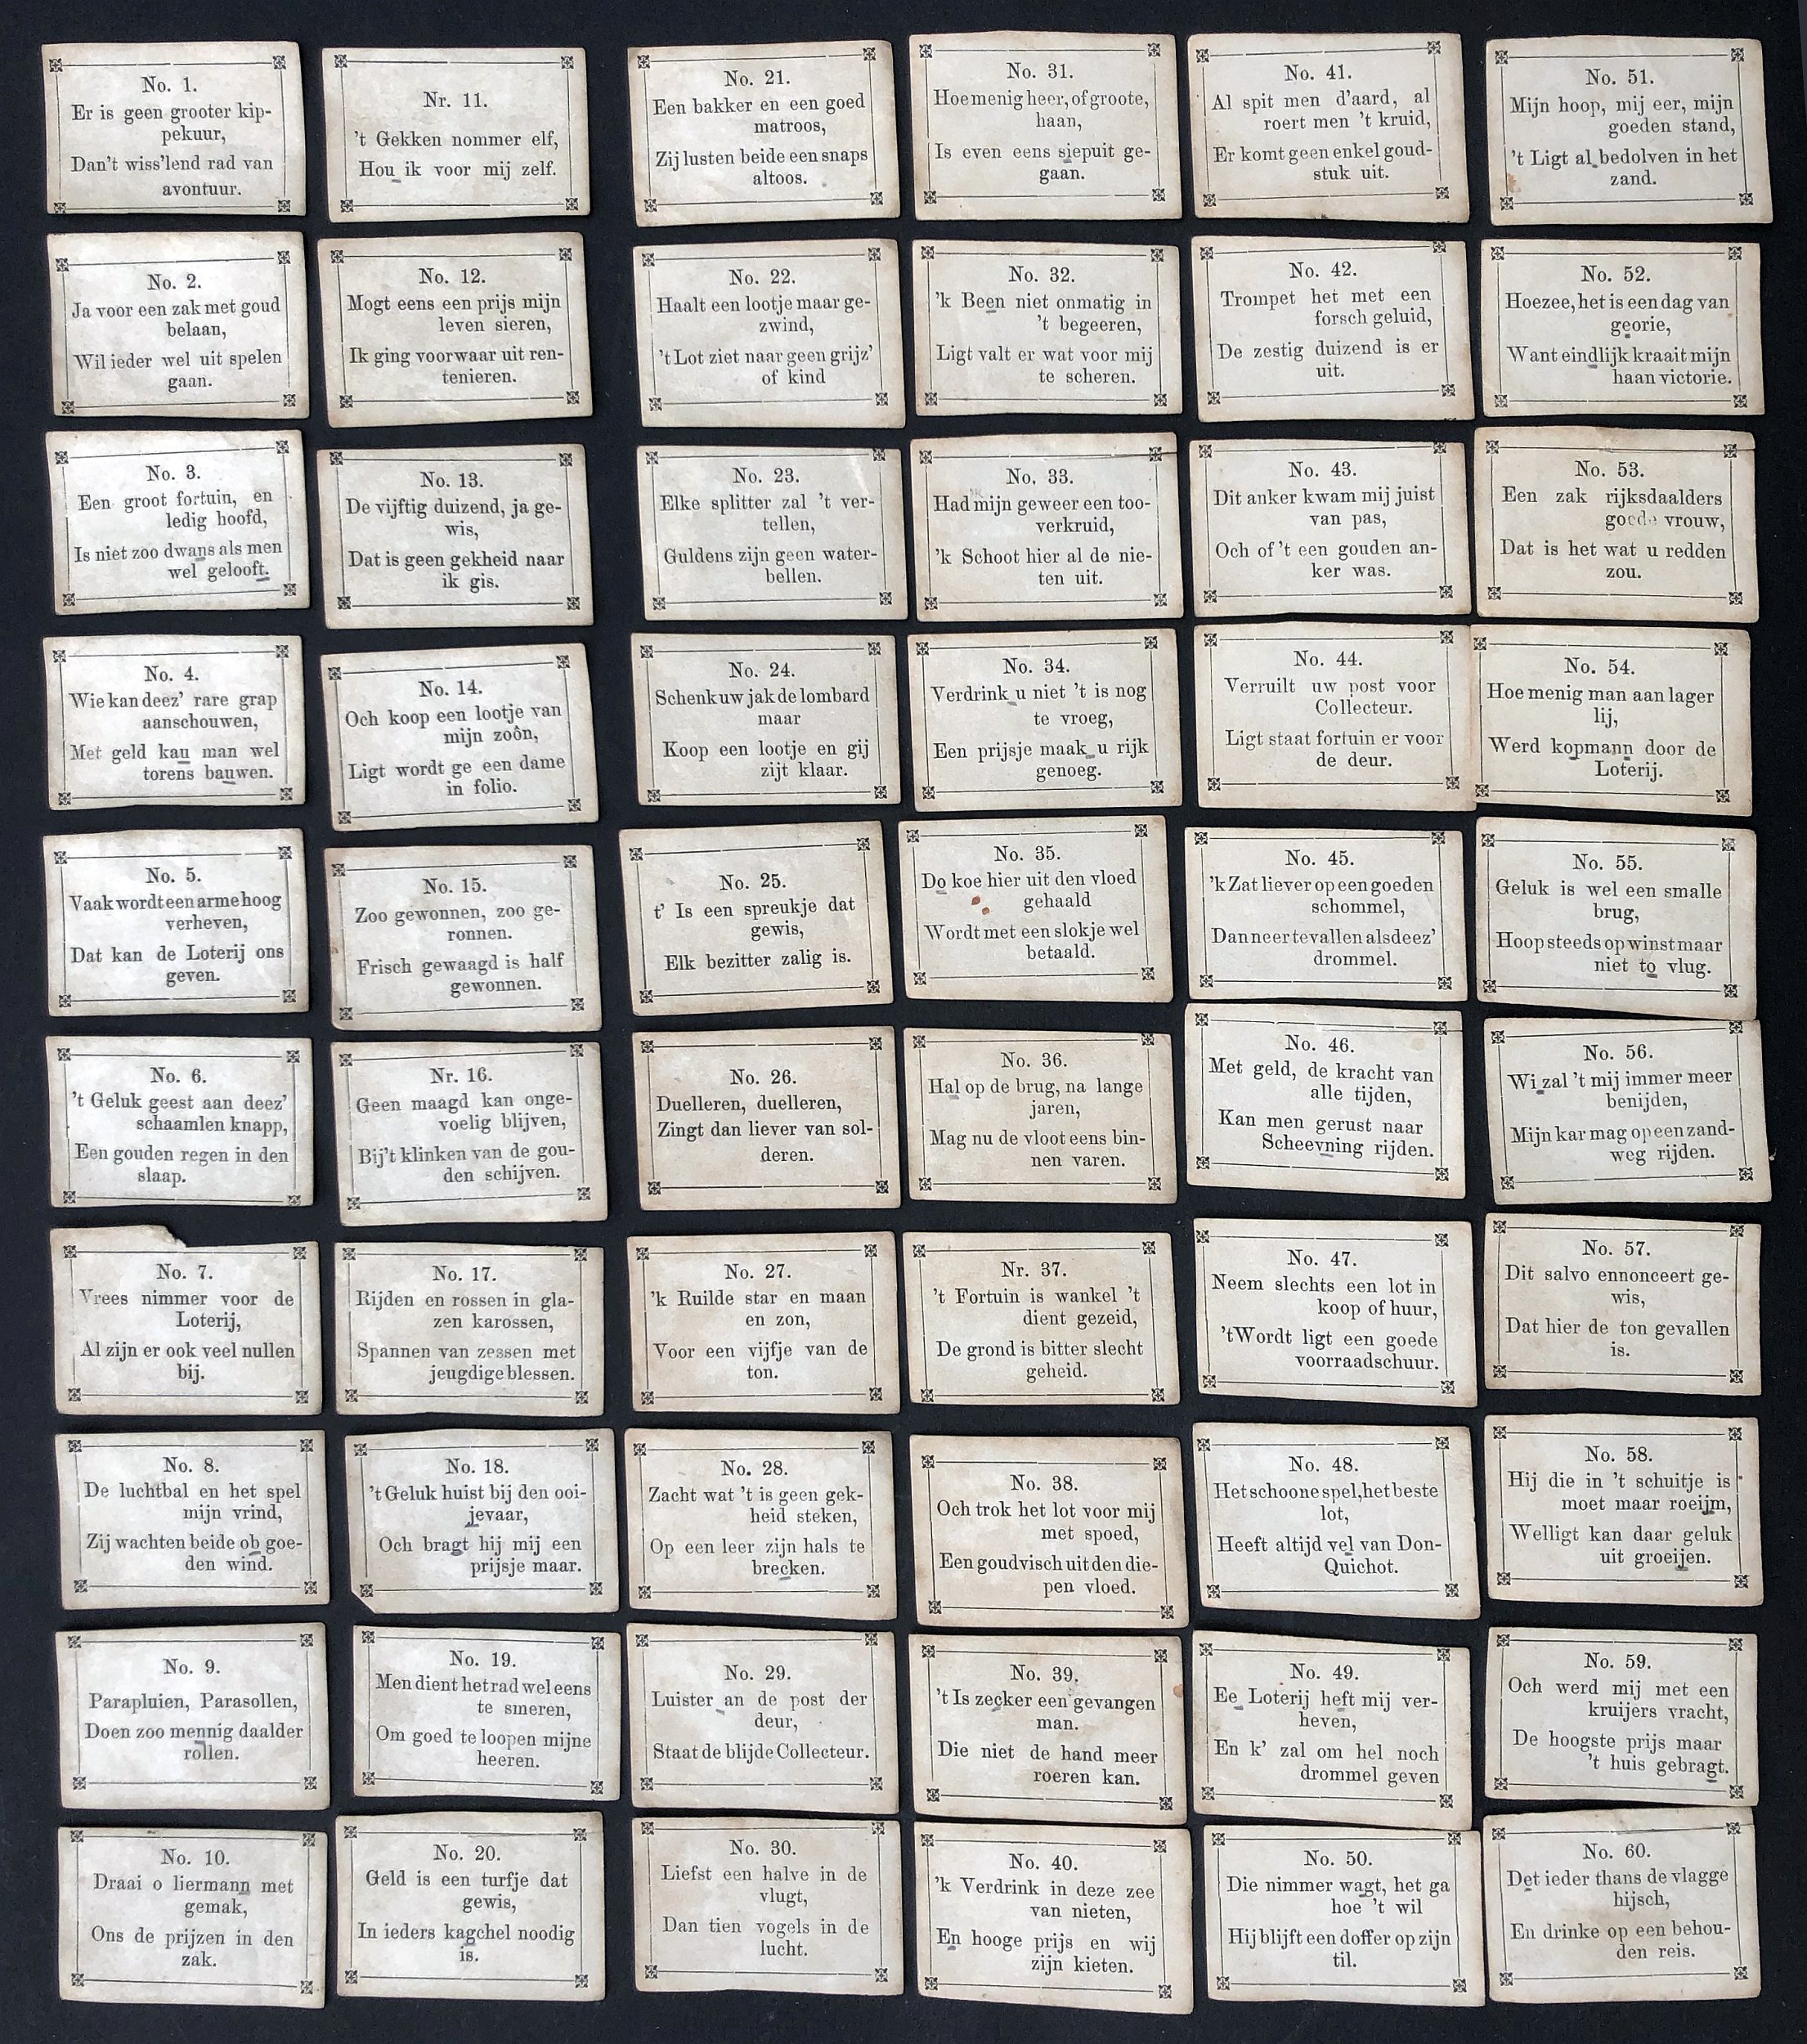 No. 1.
Er is geen grooter kip-
pekuur,
Dan't wiss'lend rad van
avontuur.
No. 2.
Ja voor een zak met goud
belaan,
Wil ieder wel uit spelen
gaan.
No. 3.
Een groot fortuin, en
ledig hoofd,
Is niet zoo dwans als men
wel gelooft.
No. 4.
Wie kan deez' rare grap
aanschouwen,
Met geld kau man wel
torens bauwen.
No. 5.
Vaak wordt een arme hoog
verheven,
Dat kan de Loterij ons
geven.
No. 6.
't Geluk geest aan deez'
schaamlen knapp,
Een gouden regen in den
slaap.
No. 7.
Vrees nimmer voor de
Loterij,
Al zijn er ook veel nullen
bij.
No. 8.
De luchtbal en het spel
mijn vrind,
Zij wachten beide ob goe-
den wind.
No. 9.
Parapluien, Parasollen,
Doen zoo mennig daalder
rollen.
No. 10.
Draai o liermann met
gemak,
Ons de prijzen in den
zak.
Nr. 11.
't Gekken nommer elf,
Hou ik voor mij zelf.
No. 12.
Mogt eens een prijs mijn
leven sieren,
Ik ging voorwaar uit ren-
tenieren.
No. 13.
De vijftig duizend, ja ge-
wis,
Dat is geen gekheid naar
ik gis.
No. 14.
Och koop een lootje van
mijn zoôn,
Ligt wordt ge een dame
in folio.
No. 15.
Zoo gewonnen, zoo ge-
ronnen.
Frisch gewaagd is half
gewonnen.
Nr. 16.
Geen maagd kan onge-
voelig blijven,
Bij't klinken van de gou-
den schijven.
No. 17.
Rijden en rossen in gla-
zen karossen,
Spannen van zessen met
jeugdige blessen.
No. 18.
't Geluk huist bij den ooi-
jevaar,
Och bragt hij mij een
prijsje maar.
No. 19.
Men dient het rad wel eens
te smeren,
Om goed te loopen mijne
heeren.
No. 20.
Geld is een turfje dat
gewis,
In ieders kagchel noodig
is.
No. 21.
Een bakker en een goed
matroos,
Zij lusten beide een snaps
altoos.
No. 22.
Haalt een lootje maar ge-
zwind,
't Lot ziet naar geen grijz'
of kind
No. 23.
Elke splitter zal 't ver-
tellen,
Guldens zijn geen water-
bellen.
No. 24.
Schenk uw jak de lombard
maar
Koop een lootje en gij
zijt klaar.
No. 25.
t' Is een spreukje dat
gewis,
Elk bezitter zalig is.
No. 26.
Duelleren, duelleren,
Zingt dan liever van sol-
deren.
No. 27.
'k Ruilde star en maan
en zon,
Voor een vijfje van de
ton.
No. 28.
Zacht wat 't is geen gek-
heid steken,
Op een leer zijn hals te
brecken.
No. 29.
Luister an de post der
deur,
Staat de blijde Collecteur.
No. 30.
Liefst een halve in de
vlugt,
Dan tien vogels in de
lucht.
No. 31.
Hoe menig heer, of groote,
haan,
Is even eens siepuit ge-
gaan.
No. 32.
'k Been niet onmatig in
't begeeren,
Ligt valt er wat voor mij
te scheren.
No. 33.
Had mijn geweer een too-
verkruid,
'k Schoot hier al de nie-
ten uit.
No. 34.
Verdrink u niet 't is nog
te vroeg,
Een prijsje maak u rijk
genoeg.
No. 35.
Do koe hier uit den vloed
gehaald
Wordt met een slokje wel
betaald.
No. 36.
Hal op de brug, na lange
jaren,
Mag nu de vloot eens bin-
nen varen.
Nr. 37.
't Fortuin is wankel 't
dient gezeid,
De grond is bitter slecht
geheid.
No. 38.
Och trok het lot voor mij
met spoed,
Een goudvisch uit den die-
pen vloed.
No. 39.
't Is zecker een gevangen
man.
Die niet de hand meer
roeren kan.
No. 40.
'k Verdrink in deze zee
van nieten,
En hooge prijs en wij
zijn kieten.
No. 41.
Al spit men d'aard, al
roert men 't kruid,
Er komt geen enkel goud-
stuk uit.
No. 42.
Trompet het met een
forsch geluid,
De zestig duizend is er
uit.
No. 43.
Dit anker kwam mij juist
van pas,
Och of 't een gouden an-
ker was.
No. 44.
Verruilt uw post voor
Collecteur.
Ligt staat fortuin er voor
de deur.
No. 45.
'k Zat liever op een goeden
schommel,
Dan neer te vallen als deez'
drommel.
No. 46.
Met geld, de kracht van
alle tijden,
Kan men gerust naar
Scheevning rijden.
No. 47.
Neem slechts een lot in
koop of huur,
't Wordt ligt een goede
voorraadschuur.
No. 48.
Het schoone spel, het beste
lot,
Heeft altijd vel van Don-
Quichot.
No. 49.
Ee Loterij heft mij ver-
heven,
En k' zal om hel noch
drommel geven
No. 50.
Die nimmer wagt, het ga
hoe 't wil
Hij blijft een doffer op zijn
til.
No. 51.
Mijn hoop, mij eer, mijn
goeden stand,
't Ligt al bedolven in het
zand.
No. 52.
Hoezee, het is een dag van
georie,
Want eindlijk kraait mijn
haan victorie.
No. 53.
Een zak rijksdaalders
goede vrouw,
Dat is het wat u redden
zou.
No. 54.
Hoe menig man aan lager
lij,
Werd kopmann door de
Loterij.
No. 55.
Geluk is wel een smalle
brug,
Hoop steeds op winst maar
niet to vlug.
No. 56.
Wi zal 't mij immer meer
benijden,
Mijn kar mag op een zand-
weg rijden.
No. 57.
Dit salvo ennonceert ge-
wis,
Dat hier de ton gevallen
is.
No. 58.
Hij die in 't schuitje is
moet maar roeijm,
Welligt kan daar geluk
uit groeijen.
No. 59.
Och werd mij met een
kruijers vracht,
De hoogste prijs maar
't huis gebragt.
No. 60.
Det ieder thans de vlagge
hijsch,
En drinke op een behou-
den reis.